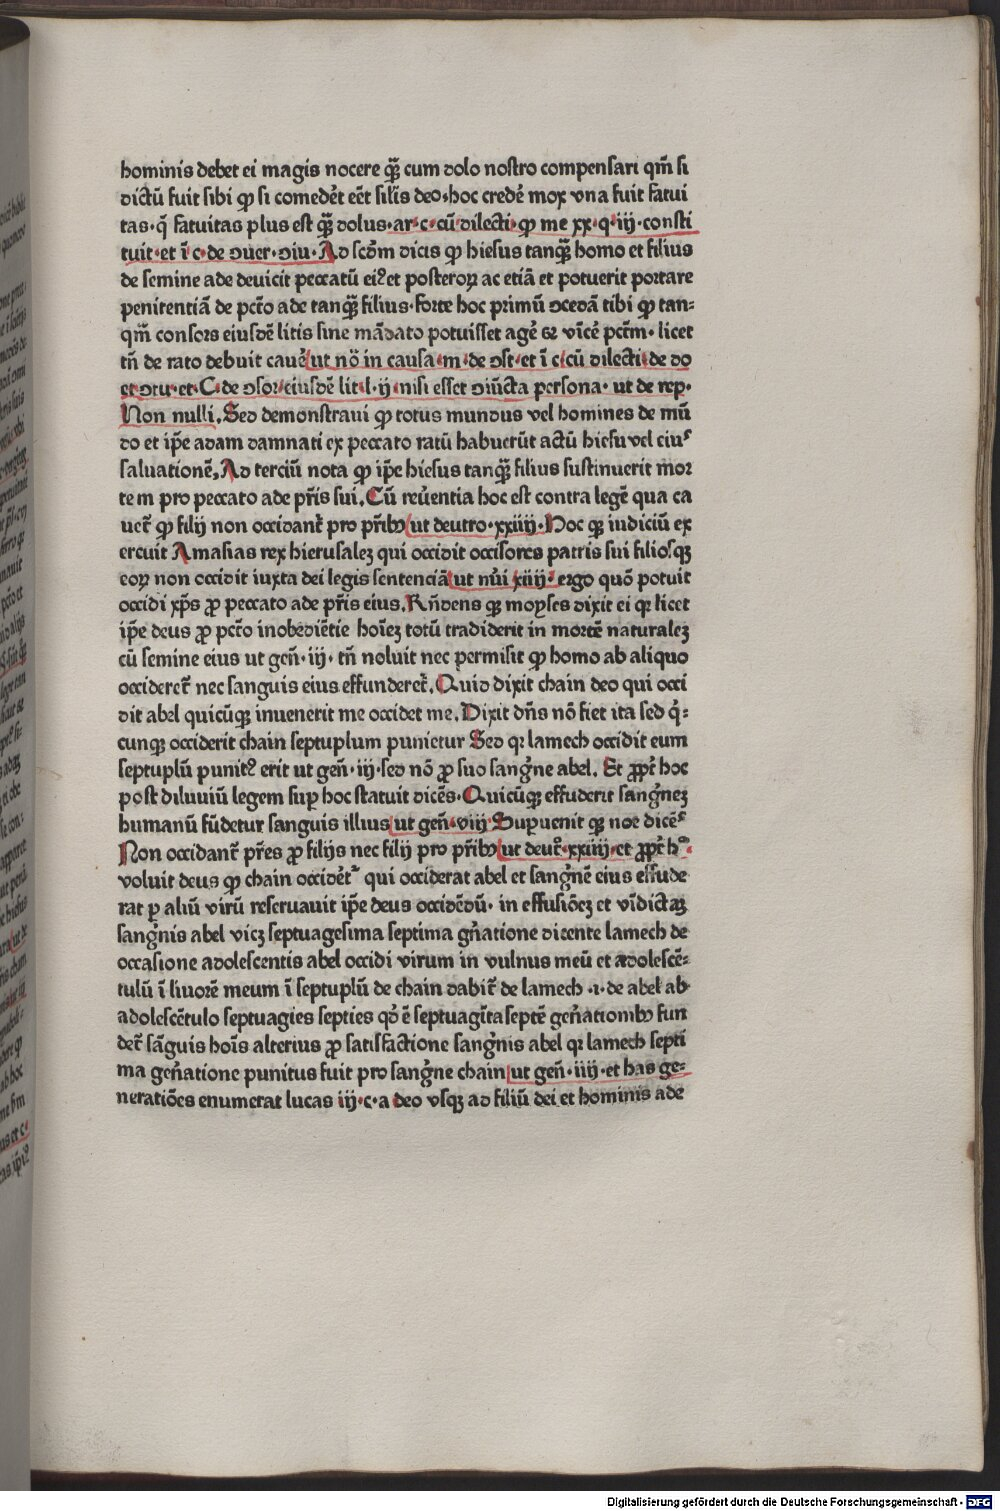 hominis debet ei magis nocere q̃ȝ cum dolo nostro compensari qm̃ si
dictū fuit sibi ꝙ si comedēt eēt silĩs deo·hoc credē mox vna fuit fatui
tas·q̃ fatuitas plus est q̃ȝ dolus·ar·c·cū dilecti·ꝙ me xx·q·iij·consti
tuit·et ĩ c·de ꝯuer·ꝯiu·Ad scd̃m dicis ꝙ hiesus tanq̃ȝ homo et filius
de semine ade deuicit peccatū eiꝰ et posteroꝝ ac etiã et potuerit portare
penitentiã de pctõ ade tanq̃ȝ filius·forte hoc primū ꝯcedã tibi ꝙ tan⸗
qm̃ consors eiusdē litis sine mãdato potuisset agē et vĩcē pctm̃·licet
tñ de rato debuit cauē ut nõ in causa·m·de ꝯst·et ĩ c·cū dilecti·de do
et ꝯtu·et·C·de ꝯsor·eiusdē lit·l·ij·nisi esset ꝯiũcta persona·ut de rep·
Non nulli. Sed demonstraui ꝙ totus mundus vel homines de mũ
do et ip̃e adam damnati ex peccato ratū habuerūt actū hiesu vel eiuˢ
saluationē. Ad terciū nota ꝙ ip̃e hiesus tanq̃ȝ filius sustinuerit mor
tem pro peccato ade pr̃is sui. Cū reũentia hoc est contra legē qua ca
uet̃ ꝙ filij non occidant̃ pro pr̃ibꝰ ut deutro·xxiiij·Hoc qȝ iudiciū ex
ercuit Amasias rex hierusaleȝ qui occidit occisores patris sui filiosqȝ
eoꝝ non occidit iuxta dei legis sentenciã ut nũi xiiij·ergo quõ potuit
occidi xp̃s ꝓ peccato ade pr̃is eius. Rñdens qȝ moyses dixit ei qꝛ licet
ip̃e deus ꝓ pctõ inobediẽtie hoĩeȝ totū tradiderit in mortē naturaleȝ
cū semine eius ut geñ·iij·tñ noluit nec permisit ꝙ homo ab aliquo
occideret̃ nec sanguis eius effunderet̃. Quid dixit chain deo qui occi
dit abel quicũqȝ inuenerit me occidet me. Dixit dñs nõ fiet ita sed q̃⸗
cunqȝ occiderit chain septuplum punietur Sed qꝛ lamech occidit eum
septuplū punitꝰ erit ut geñ·iij·sed nõ ꝓ suo sang̃ne abel. Et ꝓpt̃ hoc
post diluuiū legem suꝑ hoc statuit dicẽs·Quicũqȝ effuderit sang̃neȝ
humanū fũdetur sanguis illius ut geñ·viij·Supuenit qȝ noe dicẽˢ
Non occidant̃ pr̃es ꝓ filijs nec filij pro pr̃ibꝰ ut deut̃·xxiiij·et ꝓpt̃ hᵒ·
voluit deus ꝙ chain occidẽt̃ qui occiderat abel et sang̃nē eius effude
rat ꝑ aliū virū reseruauit ip̃e deus occidẽdū·in effusiõeȝ et vĩdictaȝ
sang̃nis abel vicȝ septuagesima septima gñatione dicente lamech de
occasione adolescentis abel occidi virum in vulnus meū et adolescẽ⸗
tulū ĩ liuorē meum ĩ septuplū de chain dabit̃ de lamech ·ı·de abel ab
adolescẽtulo septuagies septies qd̃ ẽ septuagĩta septē geñationibꝰ fun
det̃ sãguis hoĩs alterius ꝓ satisfactione sang̃nis abel qꝛ lamech septĩ
ma geñatione punitus fuit pro sang̃ne chain ut geñ·iiij·et has ge⸗
neratiões enumerat lucas iij·c·a deo vsqȝ ad filiū dei et hominis ade
Digitalisierung gefördert durch die Deutsche Forschungsgemeinschaft - DFG